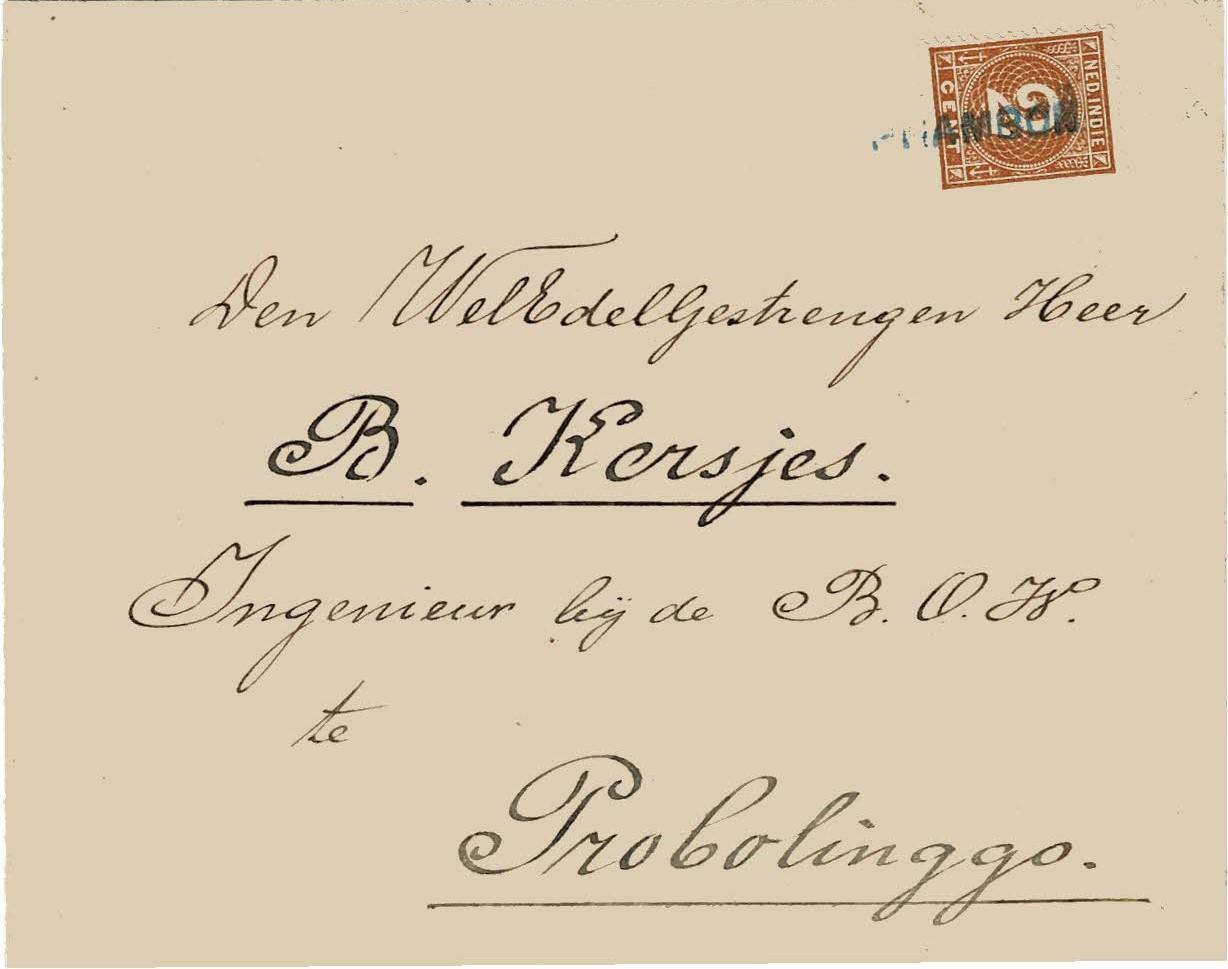 NED. INDIE
2
CENT
Den WelEdelGestrengen Heer
B. Kersjes.
Ingenieur bij de B. O. W.
te
Probolinggo.